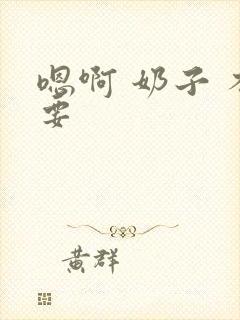 嗯啊 奶子
要
黄群